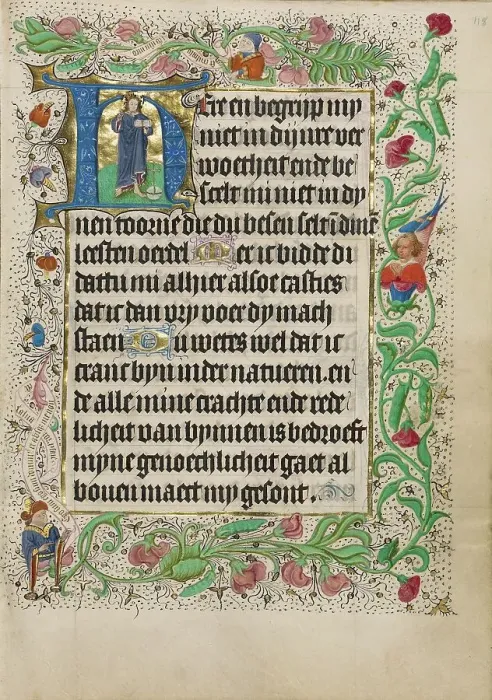 118
Here en begrijp my
niet in dijnre ver
woetheit ende be
scelt mi niet in dy
nen toorne die du besen selt ī dinē
leesten oerdel Mer ic bidde di
dattu mi alhier alsoe casties
dat ic dan vry voer dy mach
staen Du wetes wel dat ic
cranc byn in der natueren. en
de alle mine crachte ende rede
licheit van bynnen is bedroeft
myne genoechlicheit gaet al
bouen maect my gesont.